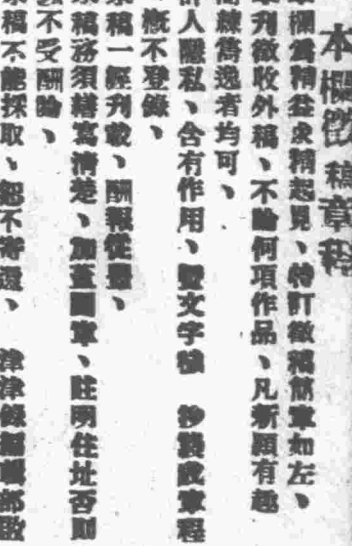 本欄徵稿章程
本欄爲精益求精起見、特訂徵稿簡章如左、
本刊徵收外稿、不論何項作品、凡新穎有趣
練雋逸者均可、
人隱私、含有作用、暨文字 抄襲成章程
概不登錄、
來稿一經刊載、酬報從豐、
來稿務須繕寫清楚、加蓋圖章、註明住址否則
不受酬論、
來稿不能採取、恕不寄還、 津津錄編輯部啟